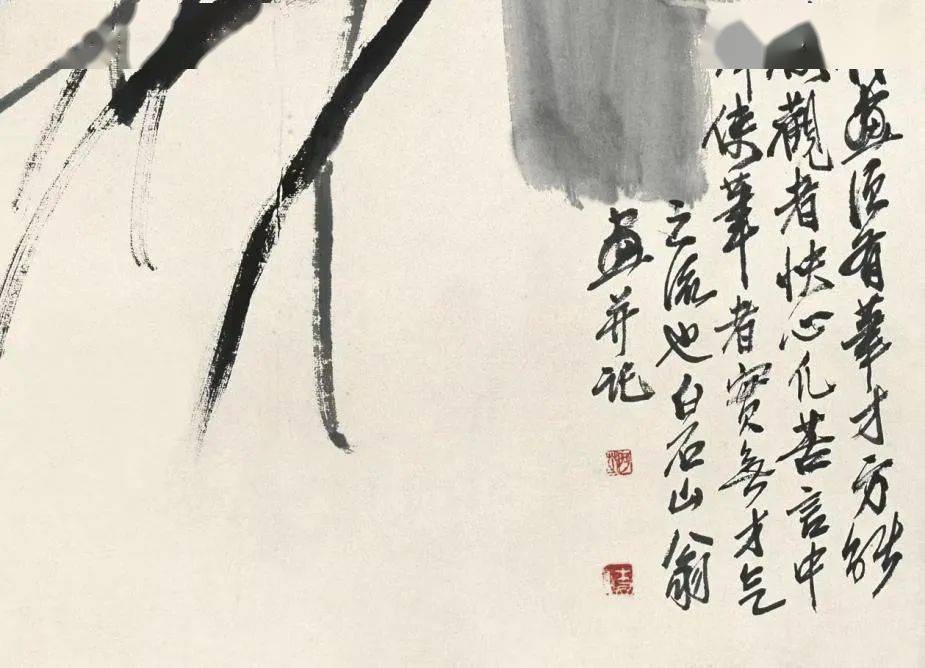 畫須有筆才方能
觀者快心凡苦言中
使筆者實無才气
之流也白石山翁
畫并記